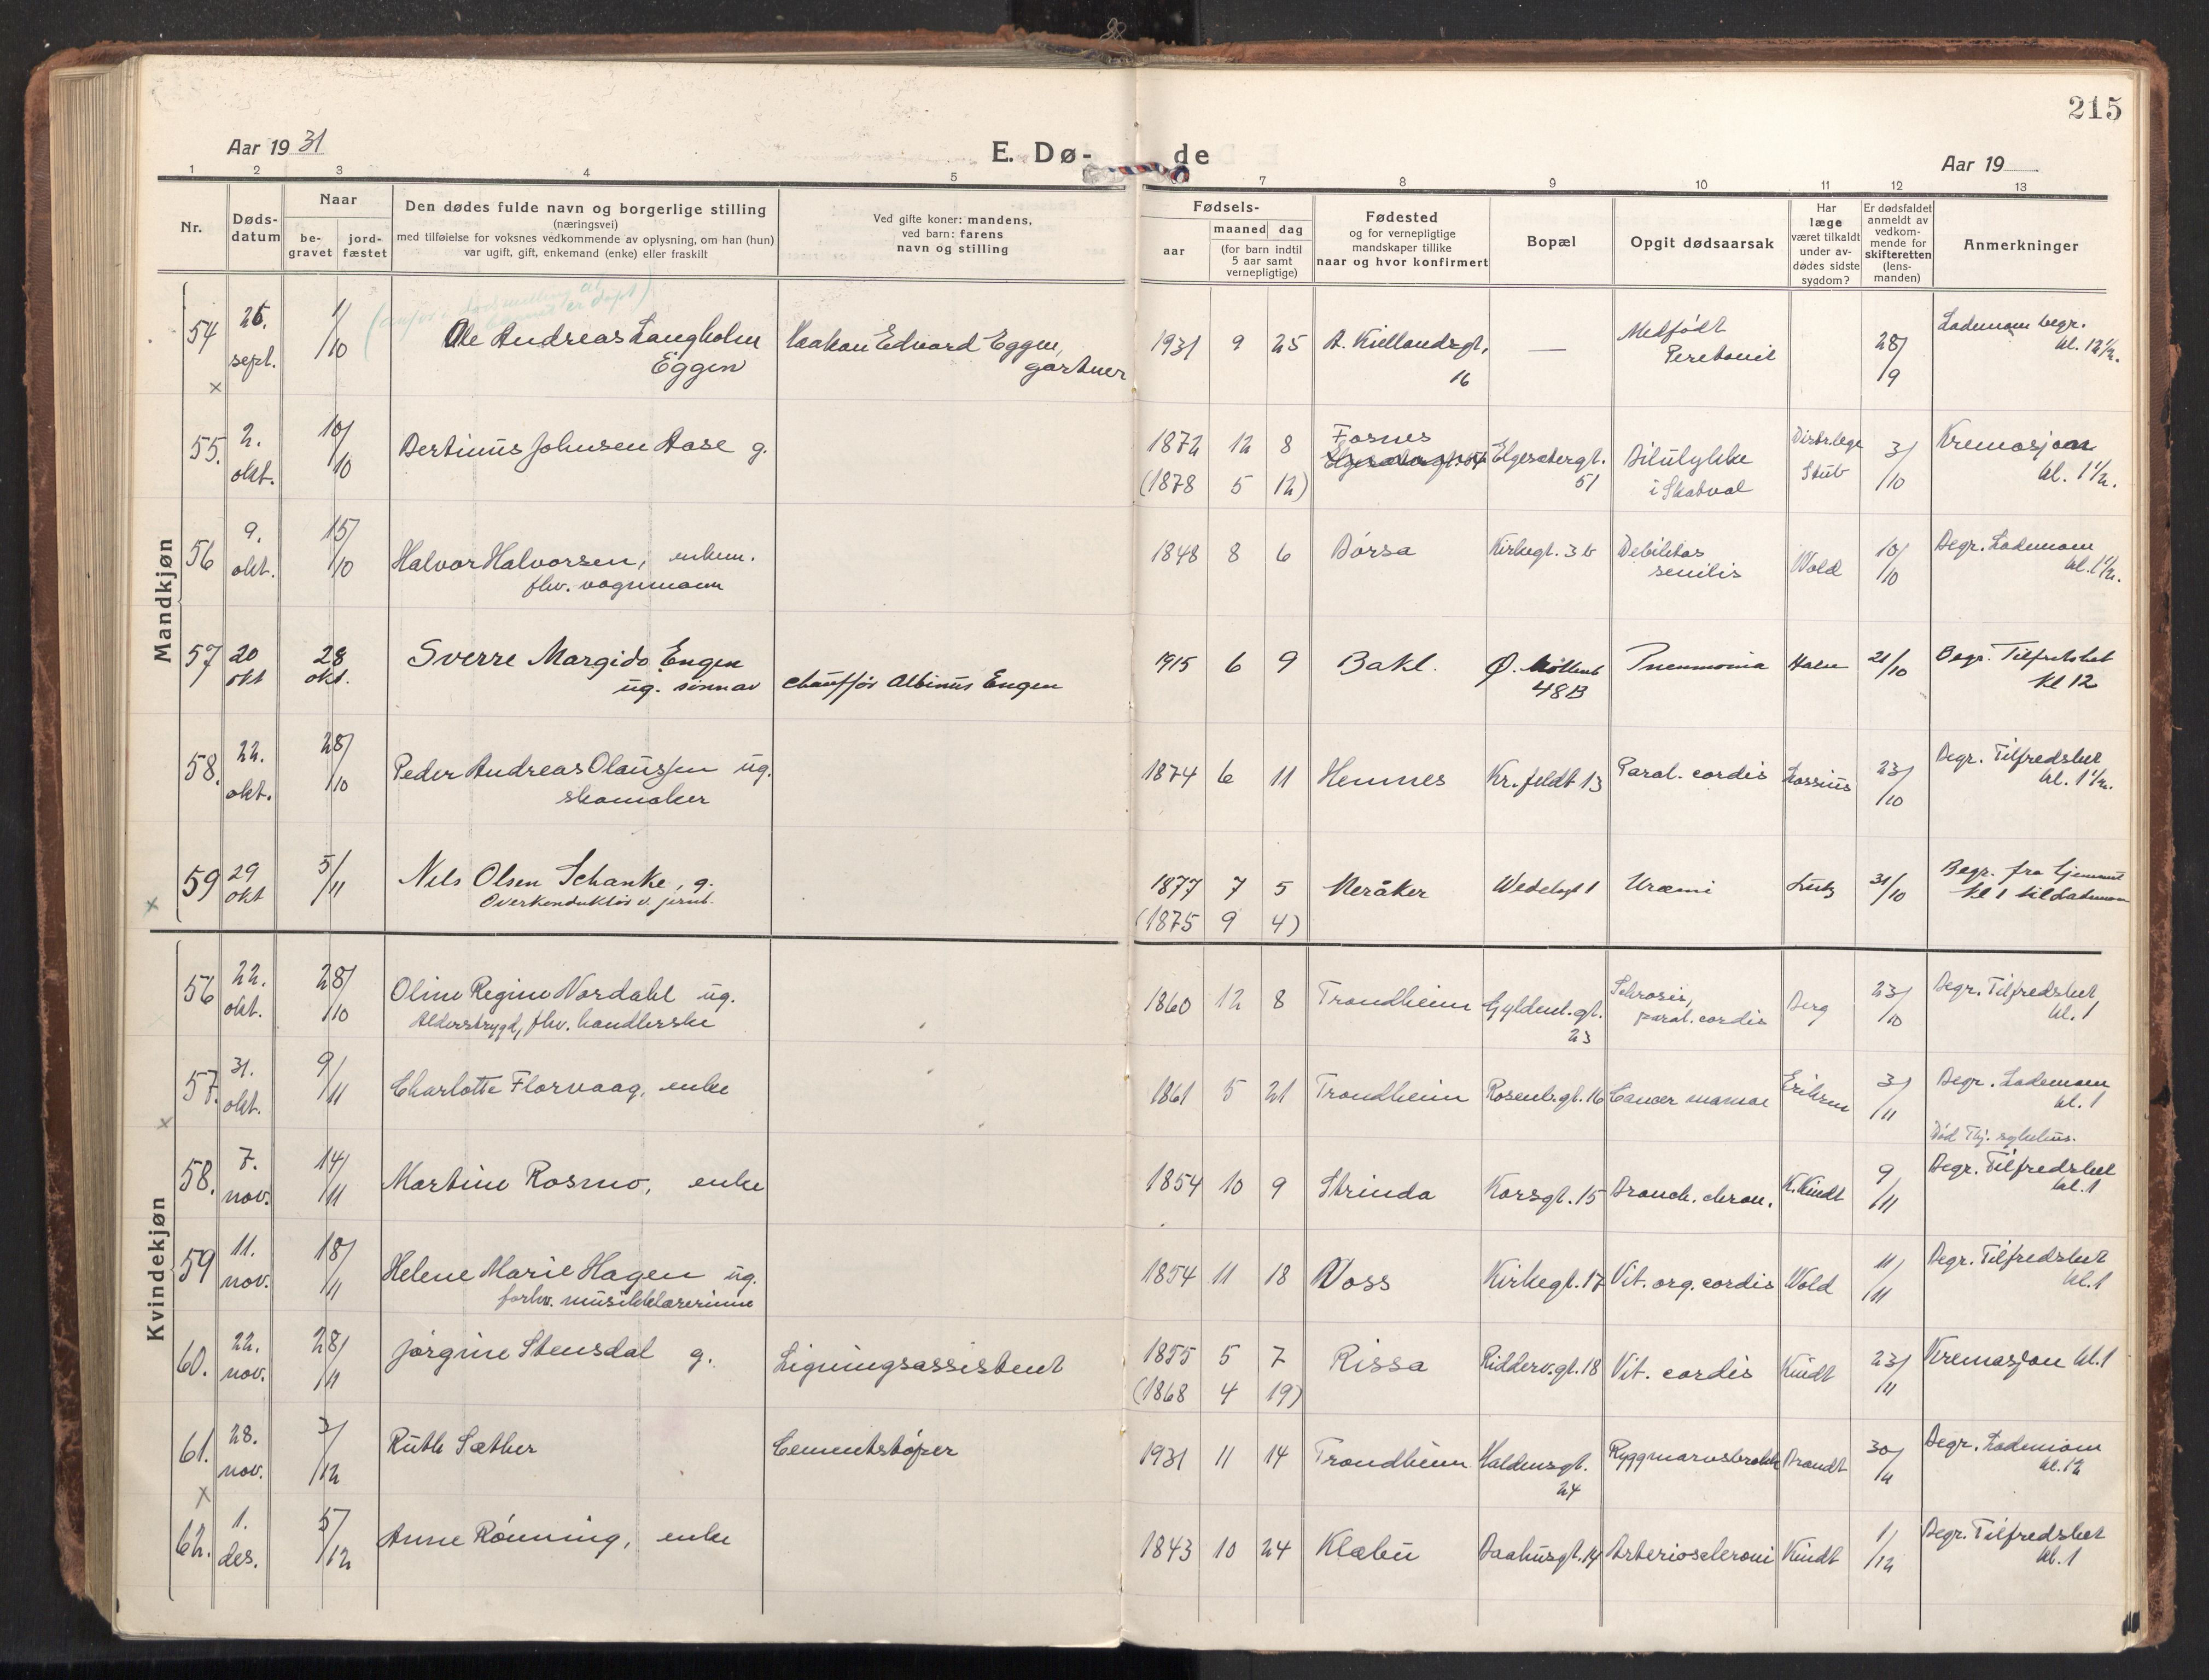 215
Aar 1931
E. Dø-
de
Aar 19
1 2 3 4 5 7 8 9 10 11 12 13
Nr.
Døds-
datum
Naar
be-
gravet
jord-
fæstet
Den dødes fulde navn og borgerlige stilling
(næringsvei)
med tilføielse for voksnes vedkommende av oplysning, om han (hun)
var ugift, gift, enkemand (enke) eller fraskilt
Ved gifte koner: mandens,
ved barn: farens
navn og stilling
Fødsels-
aar
maaned dag
(for barn indtil
5 aar samt
vernepligtige)
Fødested
og for vernepligtige
mandskaper tillike
naar og hvor konfirmert
Bopæl
Opgit dødsaarsak
Har
læge
været tilkaldt
under av-
dødes sidste
sygdom?
Er dødsfaldet
anmeldt av
vedkom-
mende for
skifteretten
(lens-
manden)
Anmerkninger
Mandkjøn
54 25. sept. 1/10 Ole Andreas Langholm Haakon Edvard Eggen, 1931 9 25 A. Kiellandsgt. — Medfödt 28/9 Lademoen begr.
Eggen gartner 16 Peretonit kl. 12 1/2.
55. 2. okt. 10/10 Bertinus Johnsen Aase g. 1872 12 8 Fosnes Elgesætergt. Bilulykke Distr.lege 3/10 Kremasjon
(1878 5 12) 51 i Skatval Stub kl. 1 1/2.
56 9. okt. 15/10 Halvor Halvorsen, enkem. 1848 8 6 Börsa Kirkegt. 3b Debilitas Wold 10/10 Begr. Lademoen
fhv. vognmann senilis kl. 1 1/2.
57 20 okt 28 okt. Sverre Margido Engen 1915 6 9 Bakl. Ø. Möllenb Pneumonia 21/10 Begr. Tilfredshet
ug. sönn av chauffør Albinus Engen 48B Kl 12
58. 22. okt. 28/10 Peder Andreas Olaussen ug. 1874 6 11 Hemnes Kr.feldt 13 Paral. cordis Lossius 23/10 Begr. Tilfredshet
skomaker kl. 1 1/2.
59 29 okt 5/11 Nils Olsen Schanke, g. 1877 7 5 Meråker Wedelsgt 1 Uræmi 31/10 Begr. fra hjemmet
Overkonduktör v. jernb. (1875 9 4) kl 1 til Lademoen
Kvindekjøn
56 22. okt. 28/10 Oline Regine Nordahl ug. 1860 12 8 Trondheim Gyldenl.gt. Sclrosis, Berg 23/10 Begr. Tilfredshet
Alderstrygd, fhv. handlerske 23 paral. cordis kl. 1
57. 31. okt. 9/11 Charlotte Florvaag, enke 1861 5 21 Trondheim Rosenb.gt. 16 Cancer mamae Eriksen 3/11 Begr. Lademoen
kl. 1
Död Thj. sykehus.
58. 7. nov. 14/11 Martine Rosmo, enke 1854 10 9 Strinda Korsgt. 15 Bronch. chron. K. Kindt 9/11 Begr. Tilfredshet
kl. 1
59 11. nov. 18/11 Helene Marie Hagen ug. 1854 11 18 Voss Kirkegt. 17 Vit. org. cordis Wold 11/11 Begr. Tilfredshet
forhv. musikklærerinne kl. 1
60. 22. nov. 28/11 Jörgine Stensdal g. Ligningsassistent 1855 5 7 Rissa Ridderv.gt. 18 Vit. cordis Kindt 23/11 Kremasjon kl. 1
(1868 4 19)
61. 28. nov. 3/12 Ruth Sæther Cementstöper 1931 11 14 Trondheim Haldensgt. Ryggmarvsbrokk Brandt 30/11 Begr. Lademoen
24 kl. 12
62. 1. des. 5/12 Anne Rönning, enke 1843 10 24 Klæbu Baahusgt. 14 Arterioscleroni Kindt 1/12 Begr. Tilfredshet
kl. 1